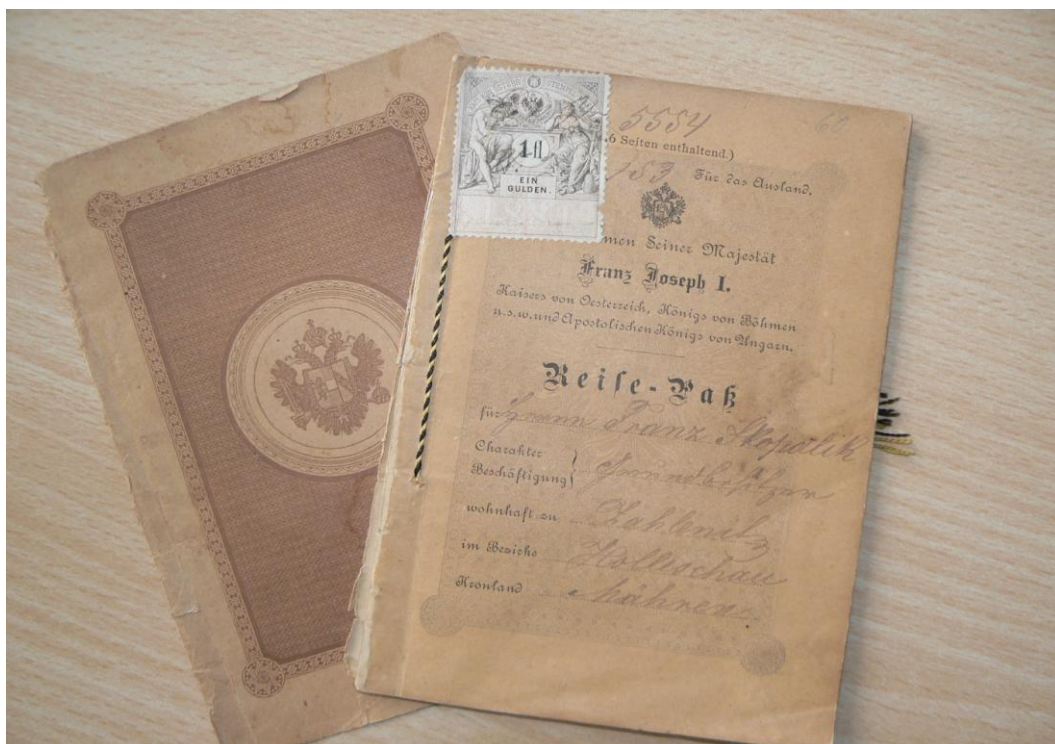 1 fl
EIN
GULDEN.
5554
6 Seiten enthaltend.)
60
153 Für das Ausland.
men Seiner Majestät
Franz Joseph I.
Kaisers von Oesterreich, Königs von Böhmen
u.s.w. und Apostolischen Königs von Ungarn.
Reise-Paß
für Herrn Franz Skopalik
Charakter
Beschäftigung } Grundbesitzer
wohnhaft zu Zahlenitz
im Bezirke Holleschau
Kronland Mähren